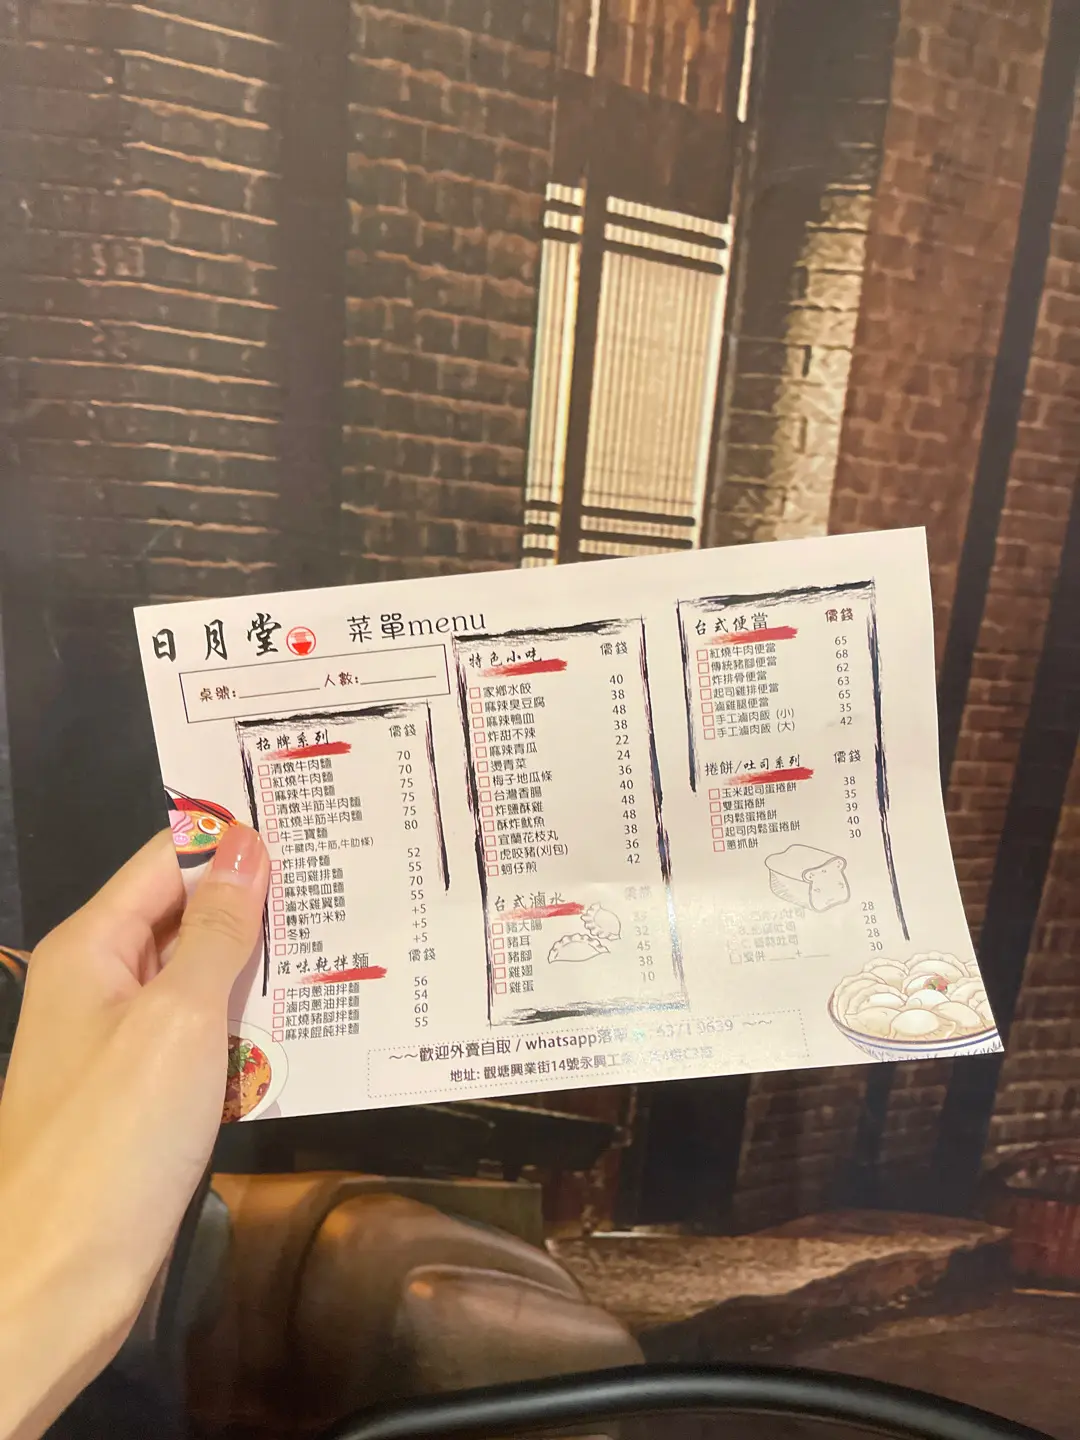 日月堂
菜單menu
桌號:________ 人數:________
招牌系列 價錢
清燉牛肉麵 70
紅燒牛肉麵 70
麻辣牛肉麵 75
清燉半筋半肉麵 75
紅燒半筋半肉麵 75
牛三寶麵 80
(牛腱肉,牛筋,牛肋條)
炸排骨麵 52
起司雞排麵 55
麻辣鴨血麵 70
滷水雞翼麵 55
轉新竹米粉 +5
冬粉 +5
刀削麵 +5
滋味乾拌麵 價錢
牛肉蔥油拌麵 56
滷肉蔥油拌麵 54
紅燒豬腳拌麵 60
麻辣餛飩拌麵 55
特色小吃 價錢
家鄉水餃 40
麻辣臭豆腐 38
麻辣鴨血 48
炸甜不辣 38
麻辣青瓜 22
燙青菜 24
梅子地瓜條 36
台灣香腸 40
炸鹽酥雞 48
酥炸魷魚 48
宜蘭花枝丸 38
虎咬豬(刈包) 36
蚵仔煎 42
台式滷水
豬大腸
豬耳 32
豬腳 45
雞翅 38
雞蛋 10
台式便當 價錢
紅燒牛肉便當 65
傳統豬腳便當 68
炸排骨便當 62
起司雞排便當 63
滷雞腿便當 65
手工滷肉飯 (小) 35
手工滷肉飯 (大) 42
捲餅/吐司系列 價錢
玉米起司蛋捲餅 38
雙蛋捲餅 35
肉鬆蛋捲餅 39
起司肉鬆蛋捲餅 40
蔥抓餅 30
28
28
28
30
~~歡迎外賣自取 / whatsapp落 9639 ~~
地址: 觀塘興業街14號永興工